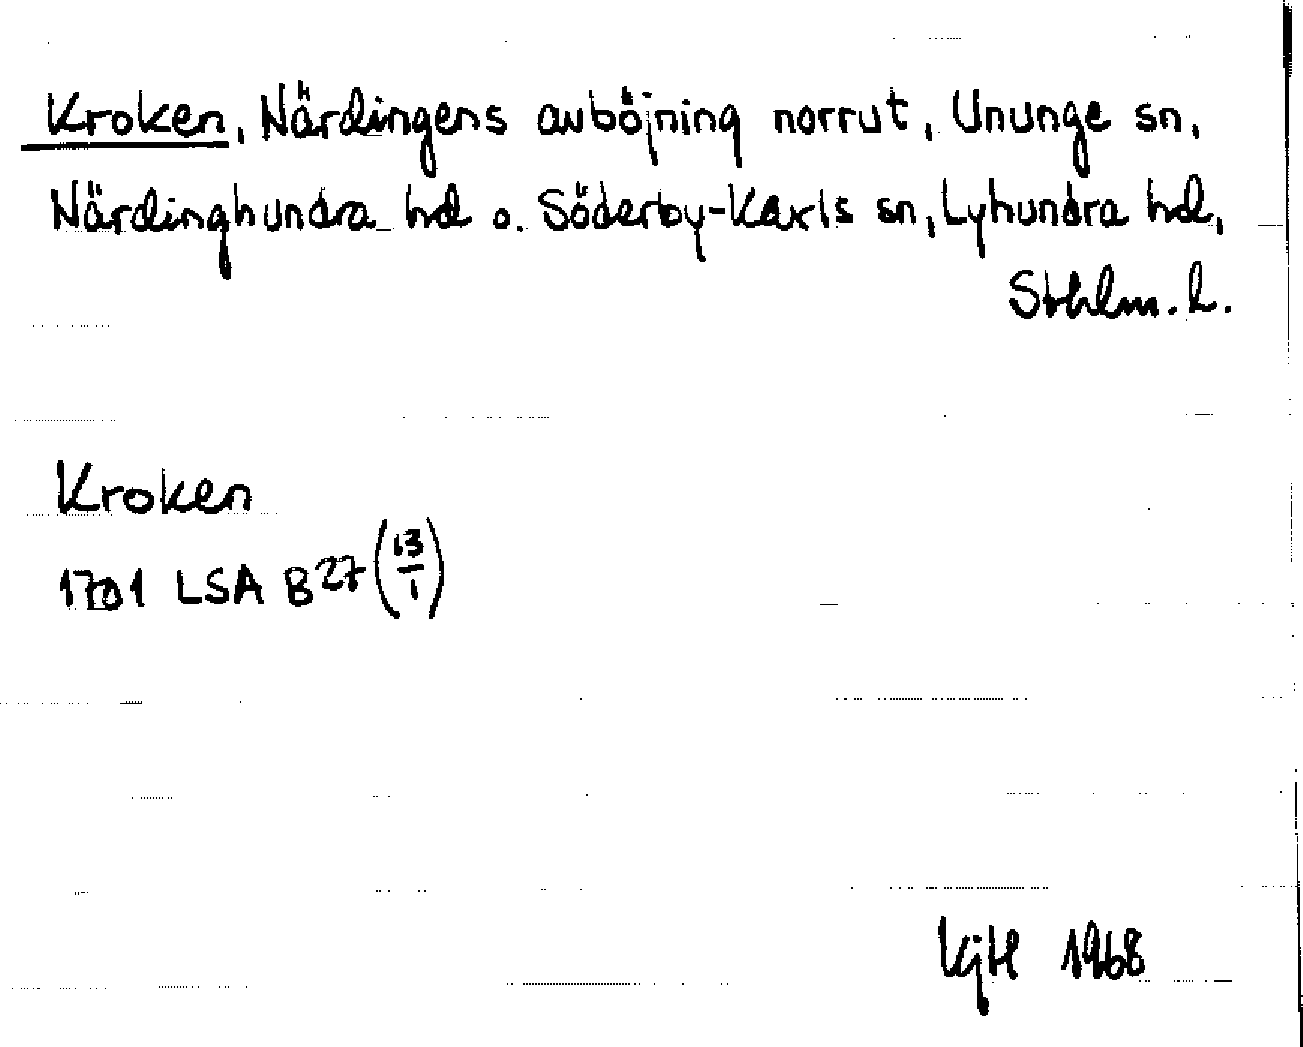 Kroken, Närdingens avböjning norrut, Ununge sn,
Närdinghundra hd o. Söderby-Karls sn, Lyhundra hd,
Sthlm. l.
Kroken
1701 LSA B27 (13/1)
KjH 1968